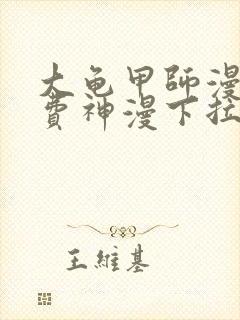 大龟甲師漫
費神漫下拉
王維基